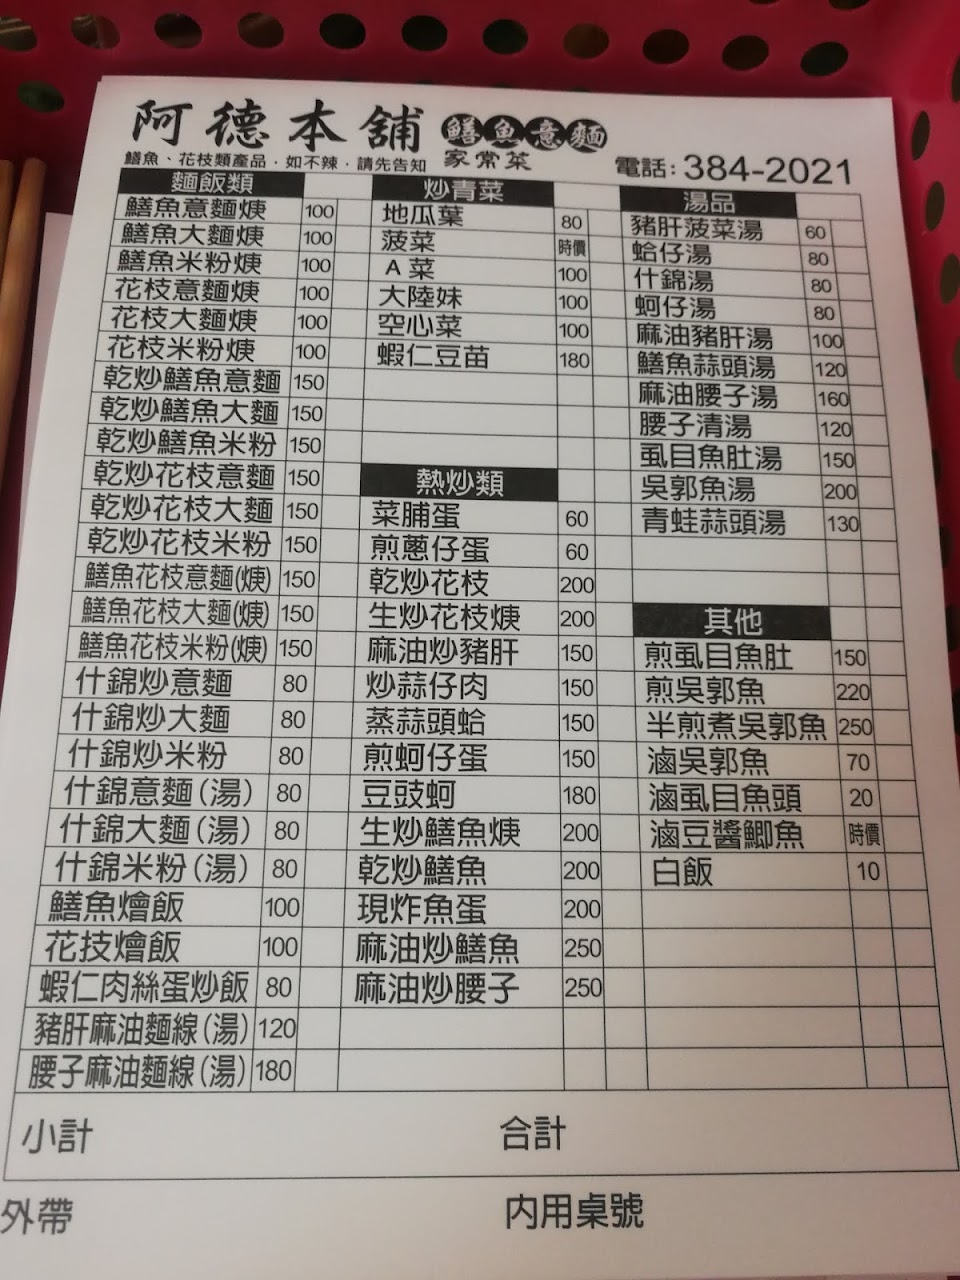 阿德本舖 鱔魚意麵
家常菜
鱔魚、花枝類產品．如不辣．請先告知
電話: 384-2021
麵飯類
鱔魚意麵焿 100
鱔魚大麵焿 100
鱔魚米粉焿 100
花枝意麵焿 100
花枝大麵焿 100
花枝米粉焿 100
乾炒鱔魚意麵 150
乾炒鱔魚大麵 150
乾炒鱔魚米粉 150
乾炒花枝意麵 150
乾炒花枝大麵 150
乾炒花枝米粉 150
鱔魚花枝意麵(焿) 150
鱔魚花枝大麵(焿) 150
鱔魚花枝米粉(焿) 150
什錦炒意麵 80
什錦炒大麵 80
什錦炒米粉 80
什錦意麵(湯) 80
什錦大麵(湯) 80
什錦米粉(湯) 80
鱔魚燴飯 100
花技燴飯 100
蝦仁肉絲蛋炒飯 80
豬肝麻油麵線(湯) 120
腰子麻油麵線(湯) 180
炒青菜
地瓜葉 80
菠菜 時價
A菜 100
大陸妹 100
空心菜 100
蝦仁豆苗 180
熱炒類
菜脯蛋 60
煎蔥仔蛋 60
乾炒花枝 200
生炒花枝焿 200
麻油炒豬肝 150
炒蒜仔肉 150
蒸蒜頭蛤 150
煎蚵仔蛋 150
豆豉蚵 180
生炒鱔魚焿 200
乾炒鱔魚 200
現炸魚蛋 200
麻油炒鱔魚 250
麻油炒腰子 250
湯品
豬肝菠菜湯 60
蛤仔湯 80
什錦湯 80
蚵仔湯 80
麻油豬肝湯 100
鱔魚蒜頭湯 120
麻油腰子湯 160
腰子清湯 120
虱目魚肚湯 150
吳郭魚湯 200
青蛙蒜頭湯 130
其他
煎虱目魚肚 150
煎吳郭魚 220
半煎煮吳郭魚 250
滷吳郭魚 70
滷虱目魚頭 20
滷豆醬鯽魚 時價
白飯 10
小計
合計
外帶
內用桌號